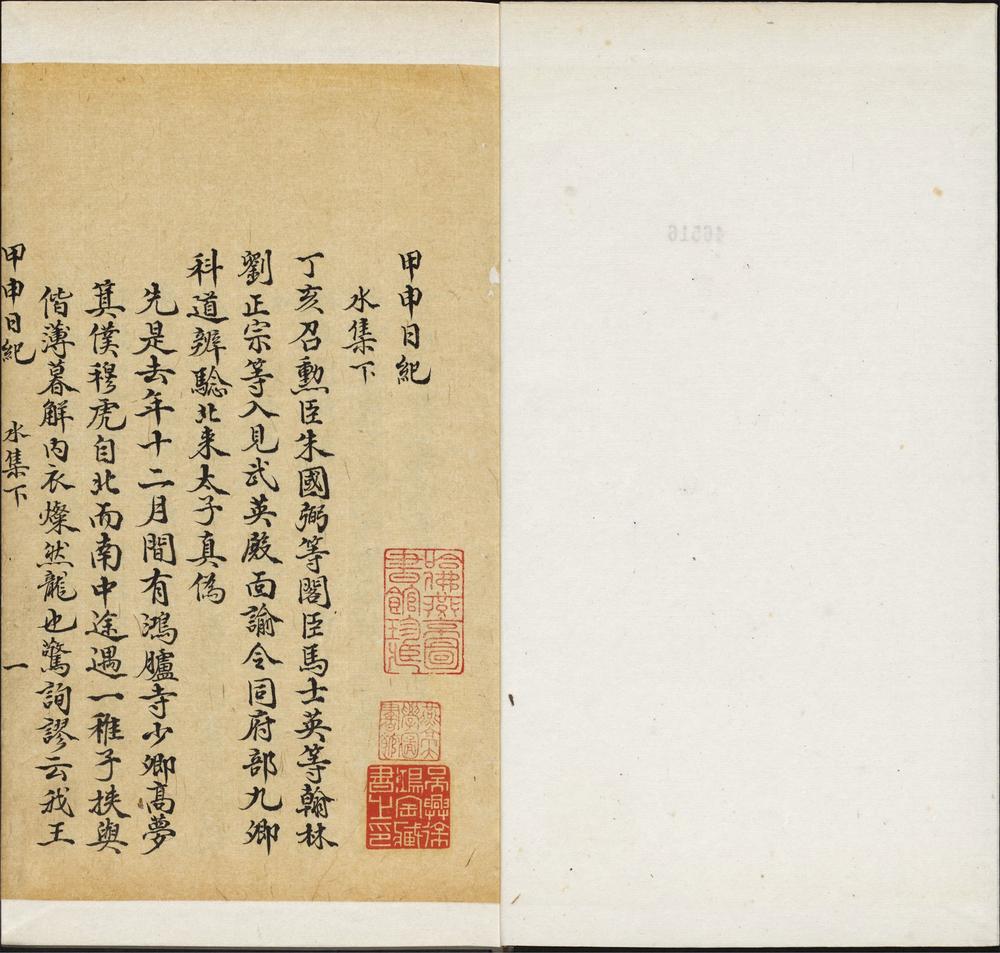 甲申日紀
水集下
丁亥召勲臣朱國弼等閣臣馬士英等翰林
劉正宗等入見武英殿面諭令同府部九卿
科道辨驗北来太子真偽
先是去年十二月間有鴻臚寺少卿髙夢
箕僕穆虎自北而南中途遇一稚子挾與
偕薄暮觧内衣燦然龍也驚詢謬云我王
甲申日紀 水集下 一
哈佛燕京圖書館珍藏
燕京大學圖書館
吳興徐鴻寶藏書之印
46516